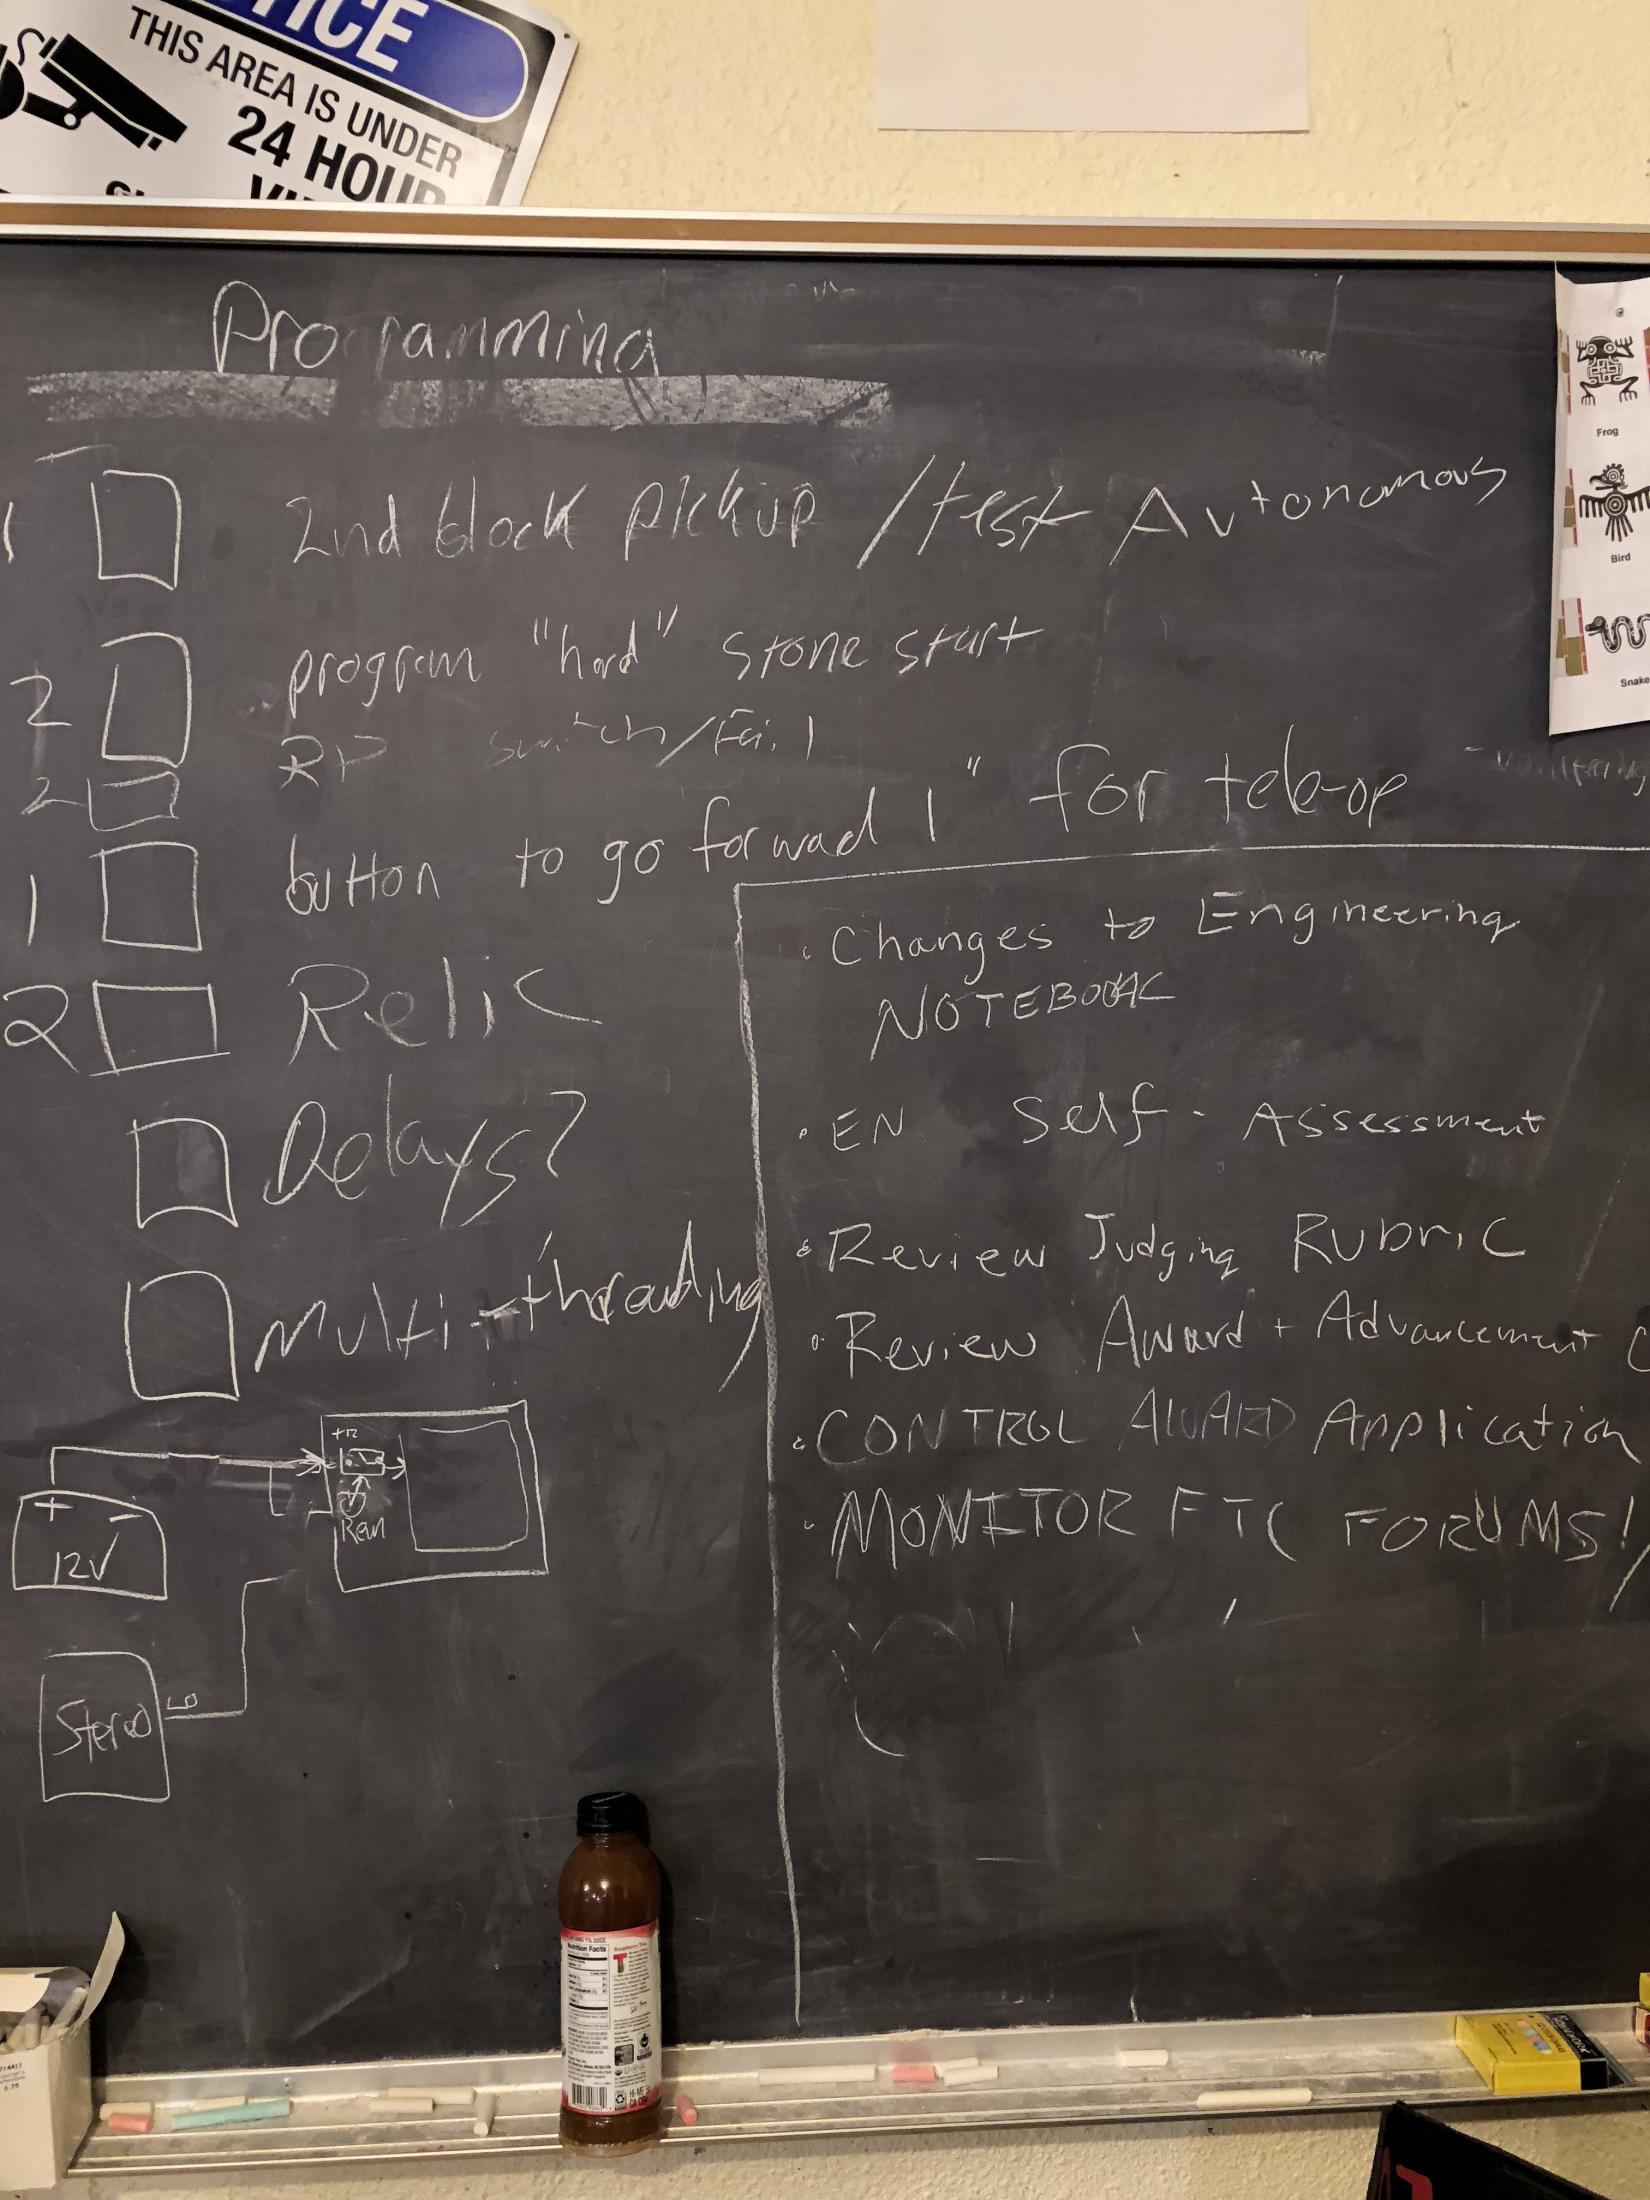 THIS AREA IS UNDER
24 HOUR
Programming
1 2nd block pickup / test Autonomous
2 program "hard" stone start
2 switch/Fail
1 button to go forward 1" for tele-op
2 Relic
Delays?
Multi-threading
Changes to Engineering
NOTEBOOK
EN Self-Assessment
Review Judging Rubric
Review Award + Advancement C
CONTROL AWARD Application
MONITOR FTC FORUMS!
+12
Ren
+ -
12V
Stereo
Frog
Bird
Snake
Nutrition Facts
Raspberry Tea